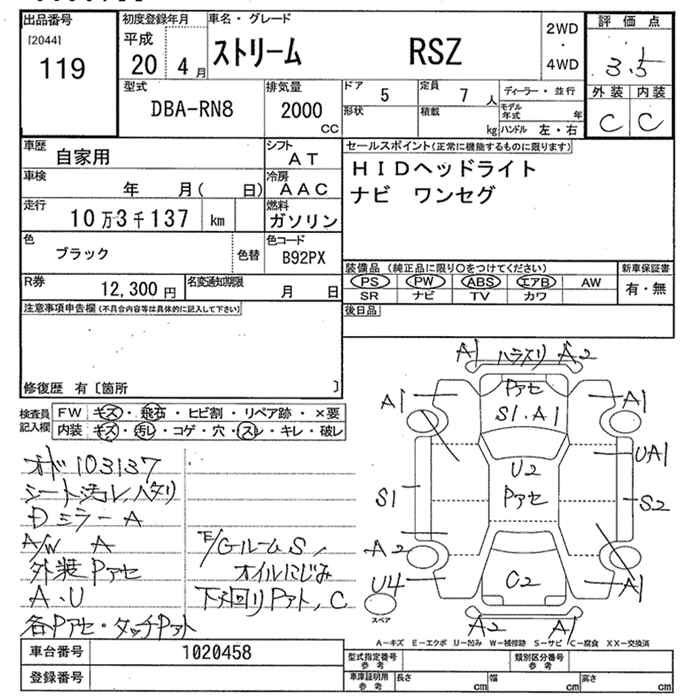 出品番号
[2044]
119
初度登録年月
平成
20 4 月
車名・グレード
ストリーム RSZ
2WD
・
4WD
評価点
3.5
外装 内装
C C
型式
DBA-RN8
排気量
2000
cc
ドア 5
定員 7 人
形状
積載 kg
ディーラー・並行
モデル年式 年
ハンドル 左・右
車歴
自家用
シフト
AT
車検
年 月( 日)
冷房
AAC
走行
10万3千137 km
燃料
ガソリン
色
ブラック
色替
色コード
B92PX
R券
12,300 円
名変通知期限
月 日
セールスポイント(正常に機能するものに限ります)
HIDヘッドライト
ナビ ワンセグ
装備品(純正品に限り○をつけてください)
PS PW ABS エアB AW
SR ナビ TV カワ
新車保証書
有・無
後日品
注意事項申告欄(不具合内容等は具体的に記入して下さい)
修復歴 有〔箇所 〕
検査員記入欄
FW キズ・飛石・ヒビ割・リペア跡・×要
内装 キズ・汚レ・コゲ・穴・スレ・キレ・破レ
オド103137
シート汚レ,ヘタリ
Dミラー A
A/W A
外装Pアセ
A・U
各Pアセ・タッチPアト
E/GルームS,
オイルにじみ
下廻りPアト,C
A1 ハラスリ A2
A1 Pアセ A1
S1.A1
UA1
U2
Pアセ
S1 S2
A2
U4 C2 A1
スペア
A2 A1
A−キズ E−エクボ U−凹み W−補修跡 S−サビ C−腐食 XX−交換済
車台番号 1020458
登録番号
型式指定番号
参考
類別区分番号
参考
車庫証明用
参考
長さ cm 幅 cm 高さ cm